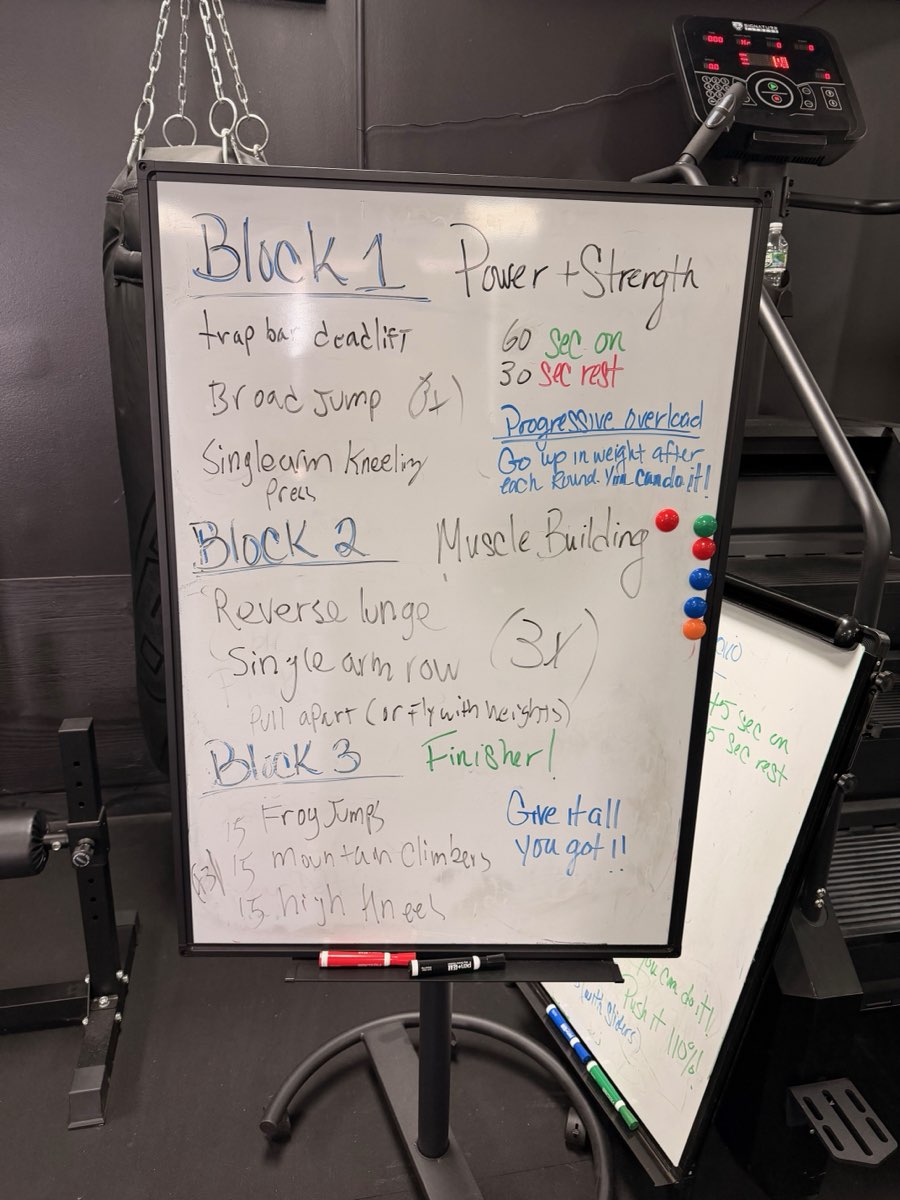 Block 1 Power + Strength
trap bar deadlift
60 sec on
30 sec rest
Broad Jump (3x)
Progressive overload
Go up in weight after
each Round. You can do it!
Single arm Kneeling
Press
Block 2 Muscle Building
Reverse lunge
Single arm row (3x)
Pull apart (or fly with weights)
Block 3 Finisher!
15 Frog Jumps
(x3) 15 mountain Climbers
15 high knees
Give it all
you got!!
45 sec on
sec rest
you can do it!
Push it
110%!
(with sliders)
SIGNATURE